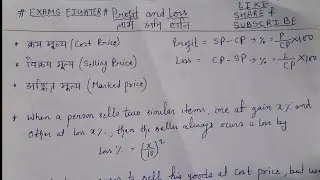 # EXAMS FIGHTER # Profit and Loss
लाभ और हानि
LIKE
SHARE &
SUBSCRIBE
• क्रय मूल्य (Cost Price)
Profit = SP-CP → % = P/CP × 100
• विक्रय मूल्य (Selling Price)
Loss = CP-SP → % = L/CP × 100
• अंकित मूल्य (Marked price)
• When a person sells two similar items, one at gain x% and
other at Loss x%, then the seller always occurs a loss by
Loss % = (x/10)²
to sell his goods at cost price, but